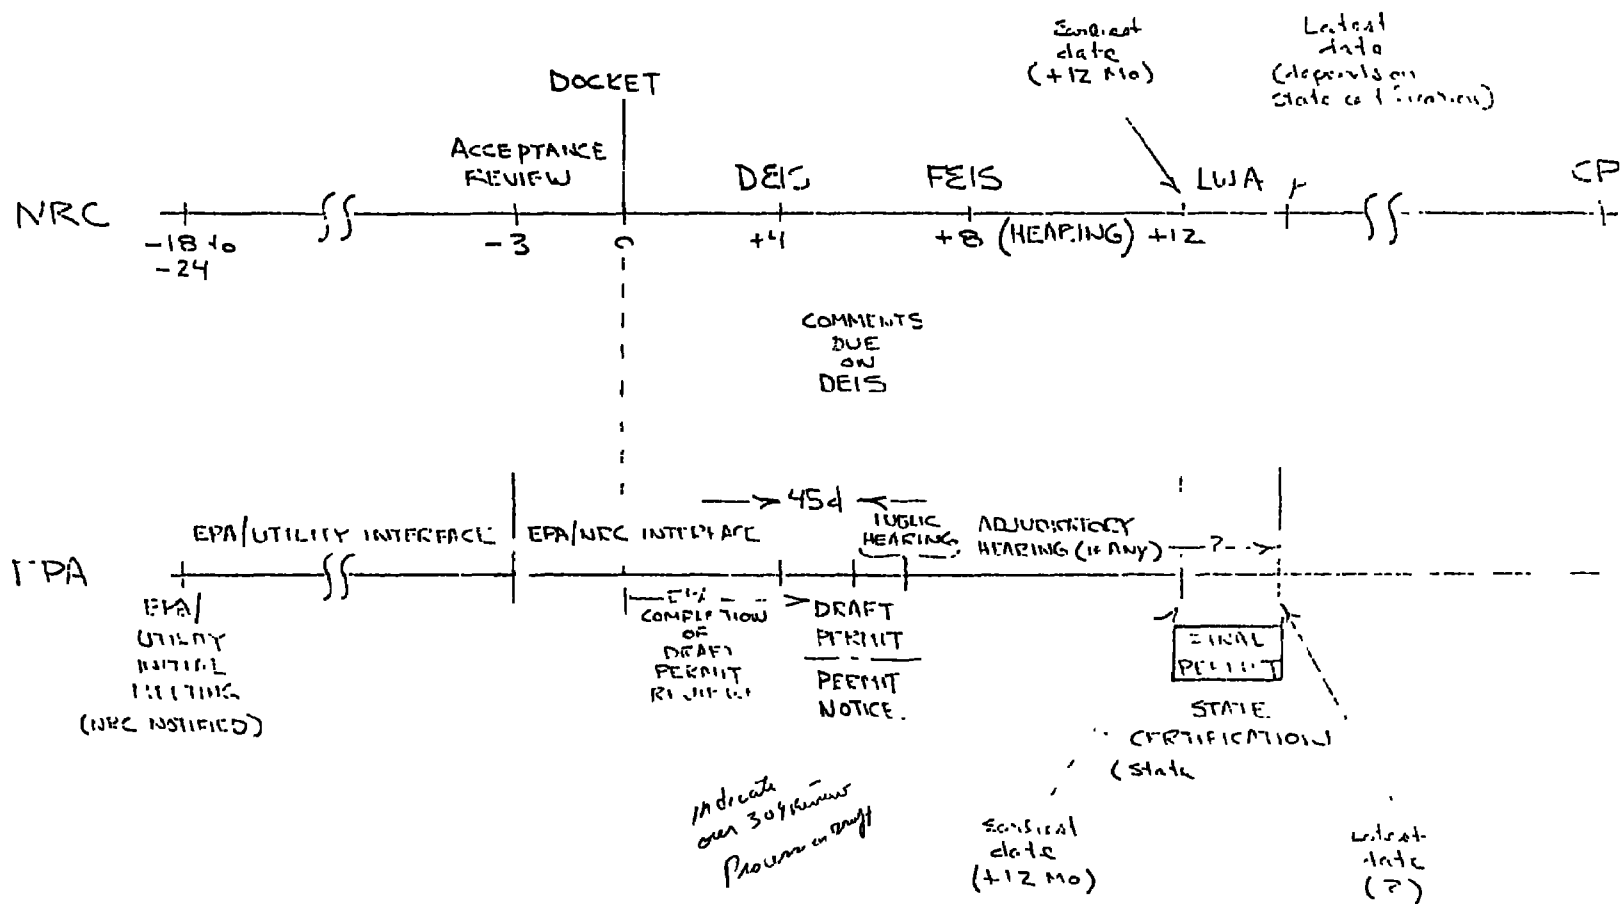 Earliest
date
(+12 Mo)
Latest
date
(depends on
state
DOCKET
ACCEPTANCE
REVIEW
DEIS
FEIS
LWA
CP
NRC
-18 to
-24
-3
0
+4
+8 (HEARING) +12
COMMENTS
DUE
ON
DEIS
45d
EPA/UTILITY INTERFACE
EPA/NRC INTERFACE
PUBLIC
HEARING
ADJUDICATORY
HEARING (IF ANY)
?
EPA
EPA/
UTILITY
INITIAL
MEETING
(NRC NOTIFIED)
COMPLETION
OF
DRAFT
PERMIT
DRAFT
PERMIT
PERMIT
NOTICE.
FINAL
PERMIT
STATE
CERTIFICATION
(State
indicate
our review
Process
Earliest
date
(+12 MO)
Latest
date
(?)